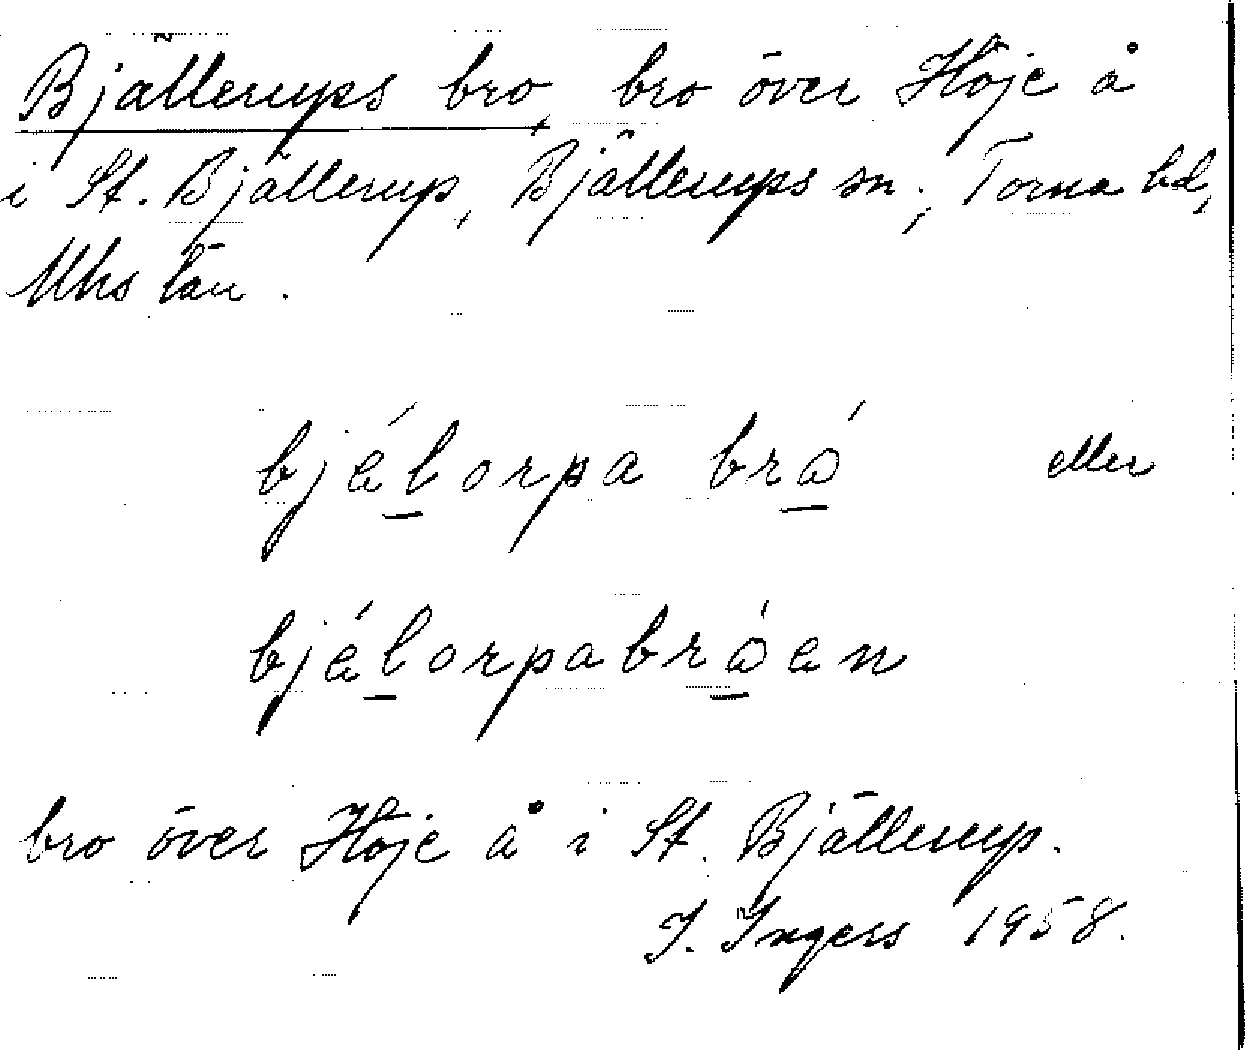 Bjällerups bro, bro över Höje å
i St. Bjällerup, Bjällerups sn, Torna hd,
Mhs län.
bjélorpa bró eller
bjélorpabróen
bro över Höje å i St. Bjällerup.
I. Ingers 1958.